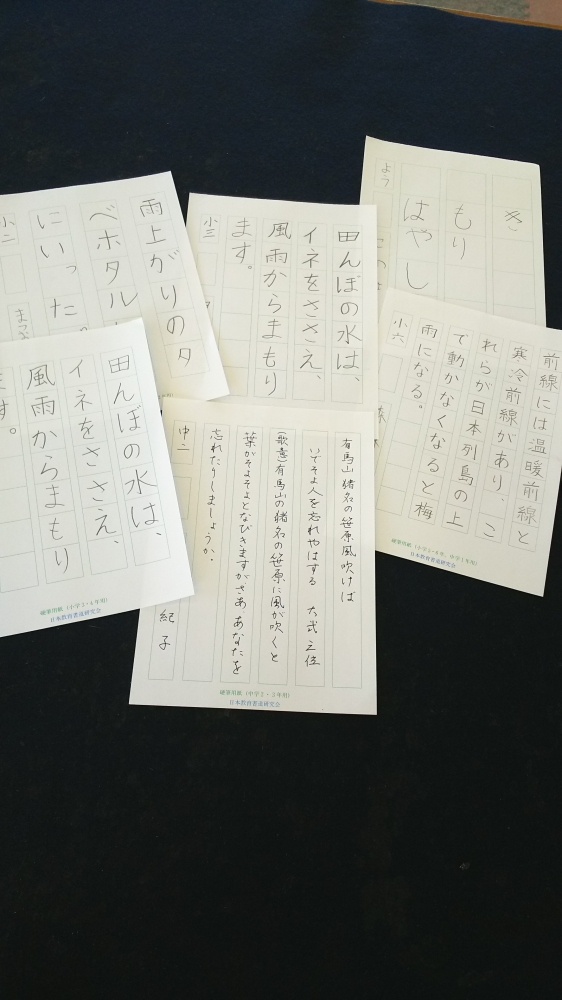 き
もり
はやし
よう
田んぼの水は、
イネをささえ、
風雨からまもり
ます。
小三
雨上がりの夕
べホタル
にいった。
小二
前線には温暖前線と
寒冷前線があり、こ
れらが日本列島の上
で動かなくなると梅
雨になる。
小六
硬筆用紙（小学5・6年、中学1年用）
日本教育書道研究会
有馬山 猪名の笹原風吹けば
いでそよ人を忘れやはする 大弐三位
(歌意)有馬山の猪名の笹原に風が吹くと
葉がそよそよとなびきますがさああなたを
忘れたりしましょうか。
中二 紀子
硬筆用紙（中学2・3年用）
日本教育書道研究会
田んぼの水は、
イネをささえ、
風雨からまもり
ます。
硬筆用紙（小学3・4年用）
日本教育書道研究会